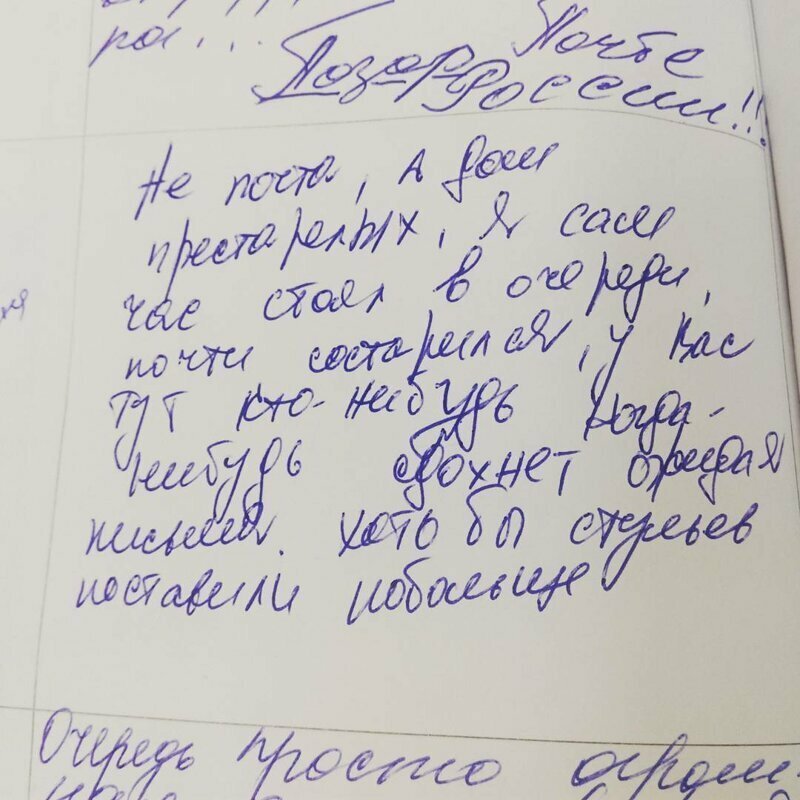 Позор Почте
России!!!
Не почта, а дом
престарелых, я сам
час стоял в очереди,
почти состарился, у вас
тут кто-нибудь когда-
нибудь сдохнет ожидая
письма. хоть бы стульев
поставили побольше
Очередь просто огром-